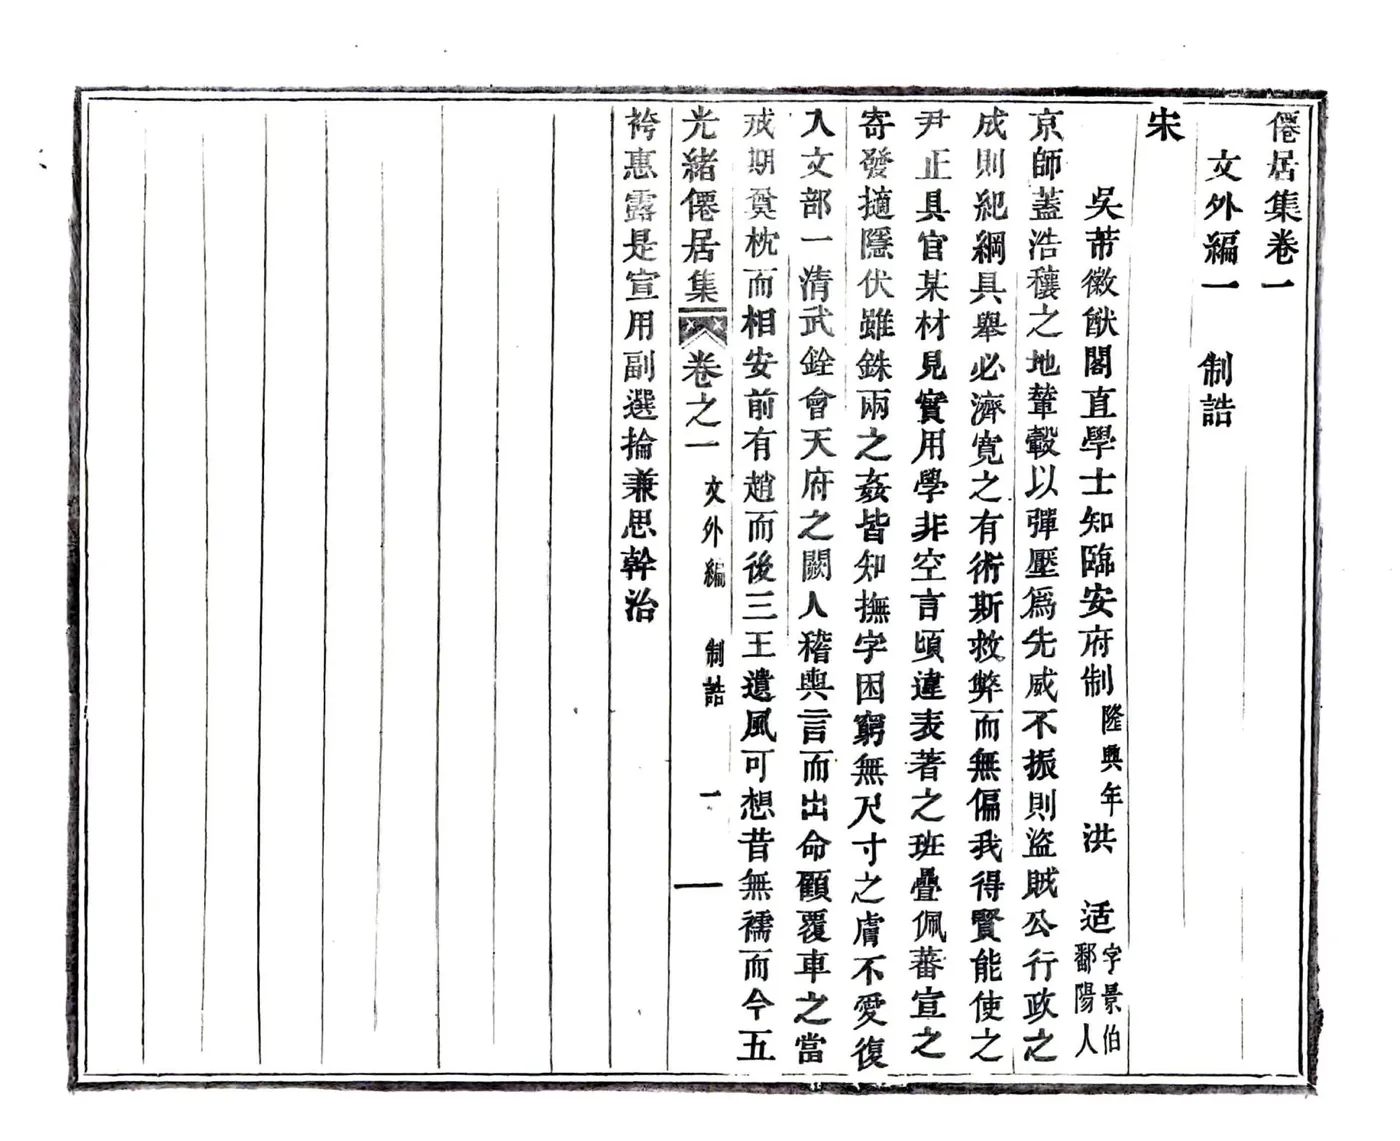 僊居集卷一
文外編一　制誥
宋
吳芾徽猷閣直學士知臨安府制隆興年洪　适字景伯鄱陽人
京師蓋浩穰之地輦轂以彈壓爲先威不振則盜賊公行政之
成則紀綱具舉必濟寬之有術斯救弊而無偏我得賢能使之
尹正具官某材見實用學非空言頃違表著之班疊佩蕃宣之
寄發擿隱伏雖銖兩之姦皆知撫字困窮無尺寸之膚不愛復
入文部一清武銓會天府之闕人稽輿言而出命顧覆車之當
戒期奠枕而相安前有趙而後三王遺風可想昔無襦而今五
光緒僊居集　卷之一　文外編　制誥　一
袴惠露是宣用副選掄兼思幹治